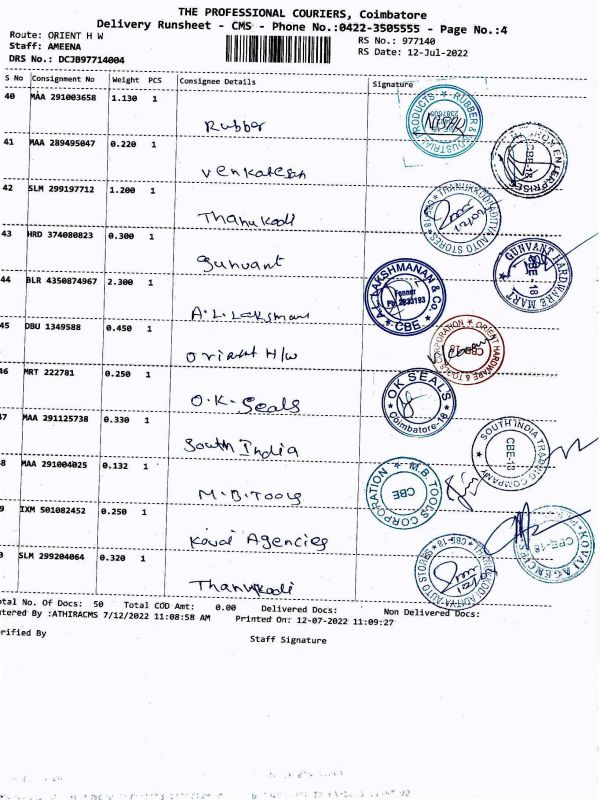 THE PROFESSIONAL COURIERS, Coimbatore
Delivery Runsheet - CMS - Phone No.:0422-3505555 - Page No.:4
Route: ORIENT H W
RS No.: 977140
Staff: AMEENA
RS Date: 12-Jul-2022
DRS No.: DCJB97714004
S No Consignment No Weight PCS Consignee Details Signature
40 MAA 291003658 1.130 1
Rubber
PRODUCTS ★ RUBBER & INDUSTRIAL
41 MAA 289495047 0.220 1
Venkatesh
ENTERPRISES
CBE-18
42 SLM 299197712 1.200 1
Thanukodi
THANUKKODI ADITYA AUTO STORES ★ CBE-18
43 HRD 374080823 0.300 1
gunvant
GUNVANT HARDWARE MART
CBE - 18
44 BLR 4350874967 2.300 1
A.L. Laksman
A.L. LAKSHMANAN & Co.
Fenner
CBE
45 DBU 1349588 0.450 1
Orient H/w
ORIENT HARDWARE & TOOLS CORPORATION
CBE-18
46 MRT 222781 0.250 1
O.K. Seals
OK SEALS
Coimbatore-18
47 MAA 291125738 0.330 1
South India
SOUTH INDIA TRADING COMPANY
CBE-18
8 MAA 291004025 0.132 1
M.B. Tools
M.B. TOOLS CORPORATION
CBE
9 IXM 501082452 0.250 1
Kovai Agencies
KOVAI AGENCIES
CBE-18
0 SLM 299204064 0.320 1
Thanukodi
ADITYA AUTO STORES ★ CBE-18
otal No. Of Docs: 50 Total COD Amt: 0.00 Delivered Docs: Non Delivered Docs:
ntered By :ATHIRACMS 7/12/2022 11:08:58 AM Printed On: 12-07-2022 11:09:27
erified By
Staff Signature